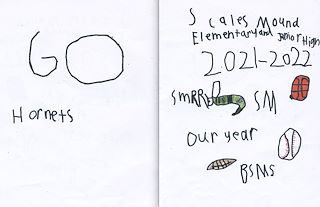 GO
Hornets
Scales Mound
Elementary and Junior High
2021-2022
SM
Our year
BSMS